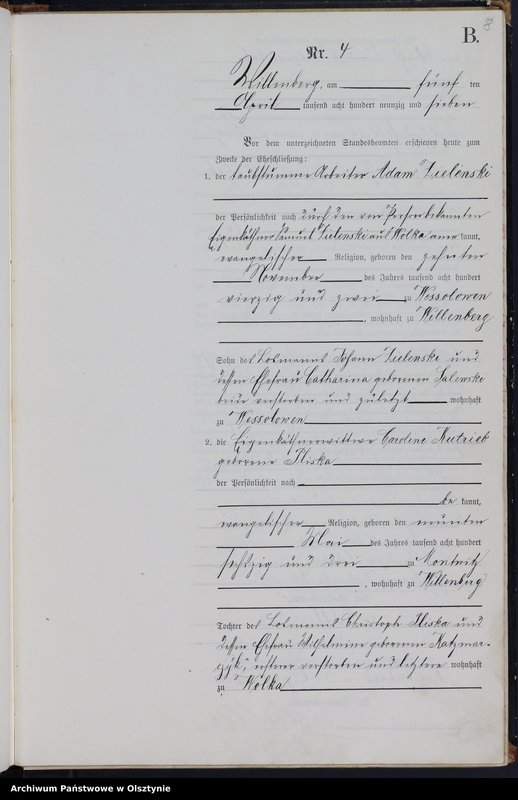 B.
Nr. 4
Willenberg, am fünf ten
April tausend acht hundert neunzig und sieben
Vor dem unterzeichneten Standesbeamten erschienen heute zum
Zwecke der Eheschließung:
1. der taubstumme Arbeiter Adam Zielenski
der Persönlichkeit nach durch den von Person bekannten
Eigenkäthner Samuel Zielenski aus Wolka aner kannt,
evangelischer Religion, geboren den zehnten
November des Jahres tausend acht hundert
vierzig und zwei zu Wessolowen
, wohnhaft zu Willenberg
Sohn des Losmanns Johann Zielenski und
dessen Ehefrau Catharina geborenen Salewski
beide verstorben und zuletzt wohnhaft
zu Wessolowen
2. die Eigenkäthnerwittwe Caroline Kutrieb
geborene Iliska
der Persönlichkeit nach
be kannt,
evangelischer Religion, geboren den neunten
Mai des Jahres tausend acht hundert
sechzig und drei zu Montwitz
, wohnhaft zu Willenberg
Tochter des Losmanns Christoph Iliska und
dessen Ehefrau Wilhelmine geborenen Katzmar-
zyk, ersterer verstorben und letztere wohnhaft
zu Wolka
Archiwum Państwowe w Olsztynie